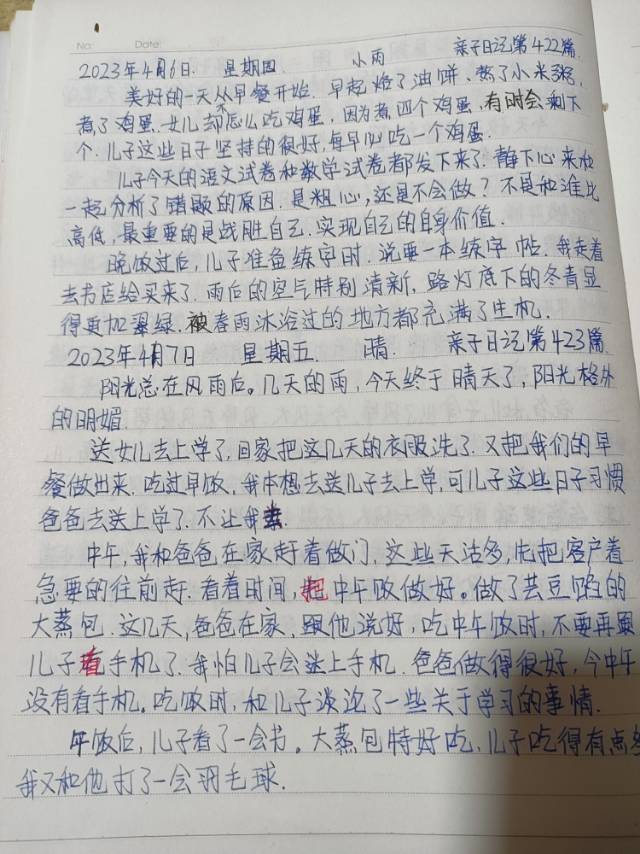 No. Date.
2023年4月6日. 星期四. 小雨 亲子日记第422篇
美好的一天从早餐开始. 早起烙了油饼, 熬了小米粥,
煮了鸡蛋. 女儿却怎么吃鸡蛋, 因为煮四个鸡蛋, 有时会剩下
个. 儿子这些日子坚持的很好, 每早必吃一个鸡蛋.
儿子今天的语文试卷和数学试卷都发下来了. 静下心来
一起分析了错题的原因. 是粗心, 还是不会做? 不是和谁比
高低, 最重要的是战胜自己. 实现自己的自身价值.
晚饭过后, 儿子准备练字时. 说要一本练字帖. 我走着
去书店给买来了. 雨后的空气特别清新, 路灯底下的冬青显
得更加翠绿. 被春雨沐浴过的地方都充满了生机.
2023年4月7日 星期五. 晴. 亲子日记第423篇.
阳光总在风雨后。几天的雨, 今天终于晴天了, 阳光格外
的明媚.
送女儿去上学了, 回家把这几天的衣服洗了. 又把我们的早
餐做出来. 吃过早饭, 我本想去送儿子去上学, 可儿子这些日子习惯
爸爸去送上学了. 不让我去.
中午, 我和爸爸在家赶着做门, 这些天活多, 先把客户着
急要的往前赶. 看着时间, 把中午饭做好。做了芸豆馅的
大蒸包. 这几天, 爸爸在家, 跟他说好, 吃中午饭时, 不要再跟
儿子看手机了. 我怕儿子会迷上手机. 爸爸做得很好, 今中午
没有看手机。吃饭时, 和儿子谈论了一些关于学习的事情.
午饭后, 儿子看了一会书。大蒸包特好吃, 儿子吃得有点
我又和他打了一会羽毛球.